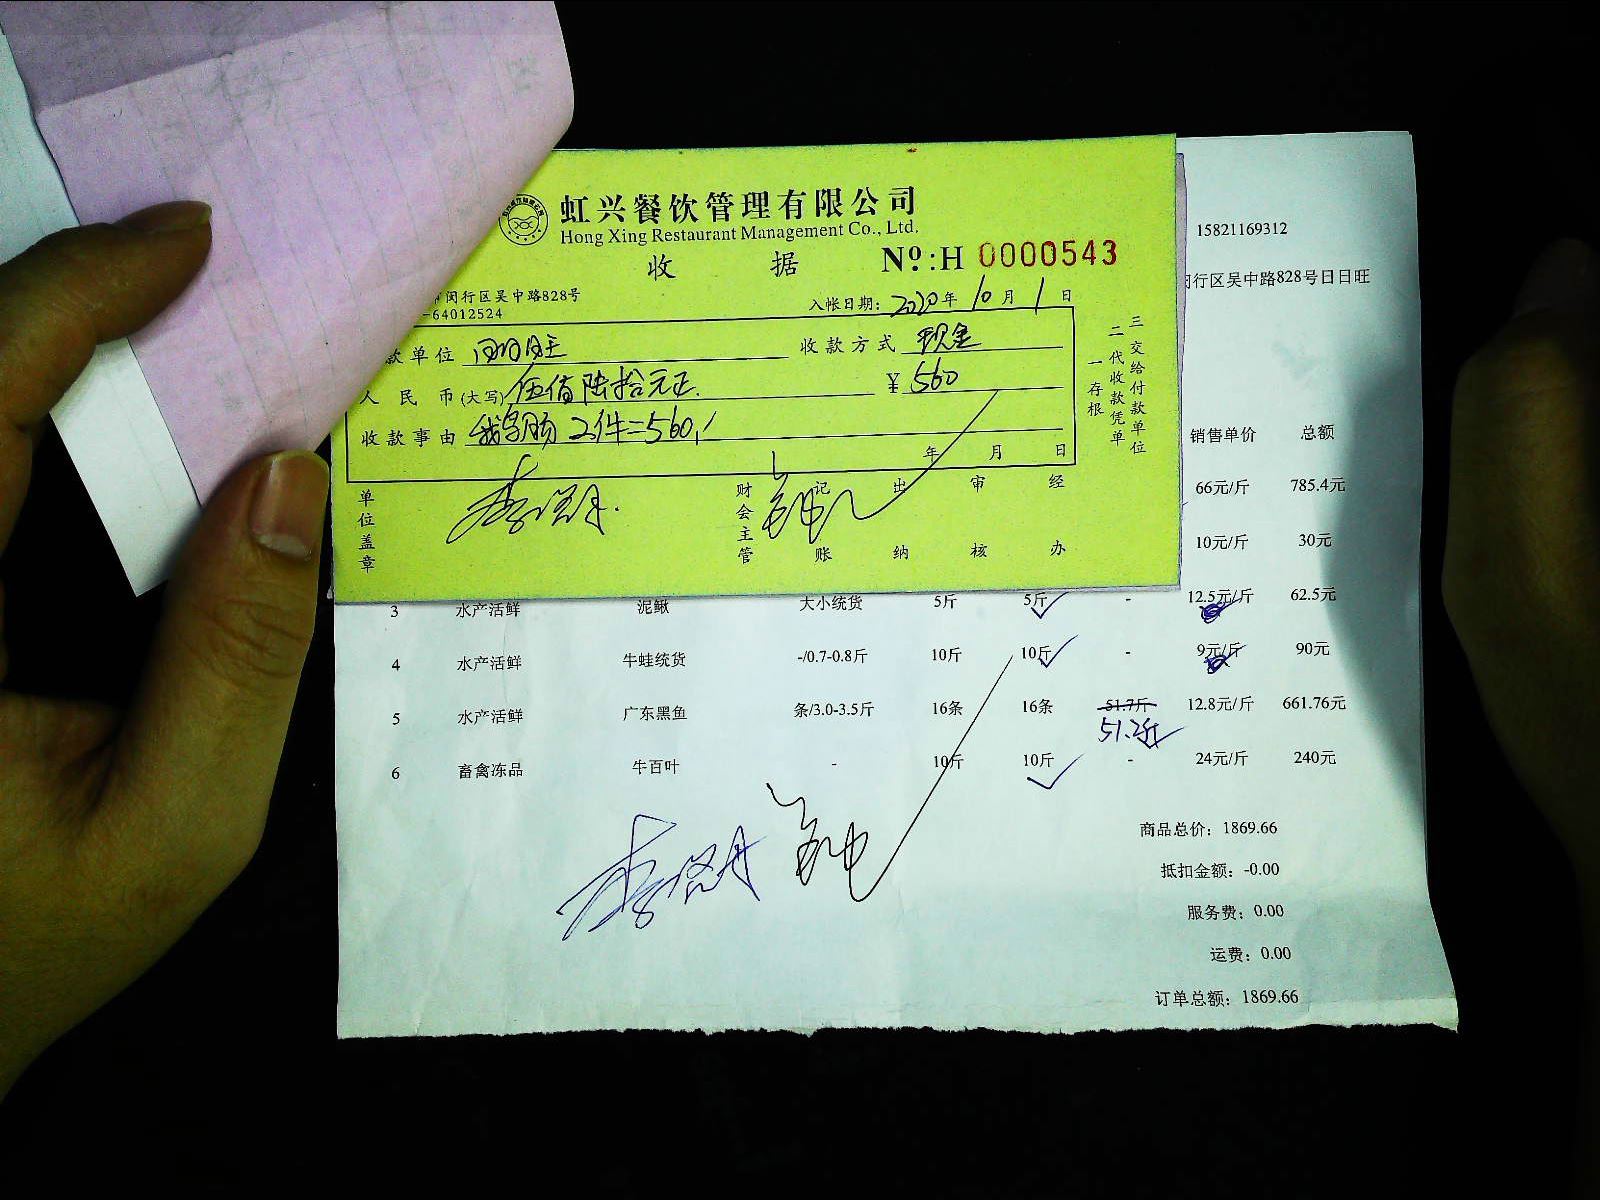 虹兴餐饮管理有限公司
Hong Xing Restaurant Management Co., Ltd.
收 据 Nº:H 0000543
闵行区吴中路828号
-64012524
入帐日期: 2020年10月1日
款单位 日日旺 收款方式 现金
人民币(大写) 伍佰陆拾元正. ¥ 560
收款事由 2件=560
年 月 日
一存根
二代收款凭单
三交给付款单位
单位盖章 财会主管 记账 出纳 审核 经办
15821169312
闵行区吴中路828号日日旺
销售单价 总额
66元/斤 785.4元
10元/斤 30元
3 水产活鲜 泥鳅 大小统货 5斤 5斤 - 12.5元/斤 62.5元
4 水产活鲜 牛蛙统货 -/0.7-0.8斤 10斤 10斤 - 9元/斤 90元
5 水产活鲜 广东黑鱼 条/3.0-3.5斤 16条 16条 51.7斤 12.8元/斤 661.76元
51.2斤
6 畜禽冻品 牛百叶 - 10斤 10斤 - 24元/斤 240元
商品总价: 1869.66
抵扣金额: -0.00
服务费: 0.00
运费: 0.00
订单总额: 1869.66